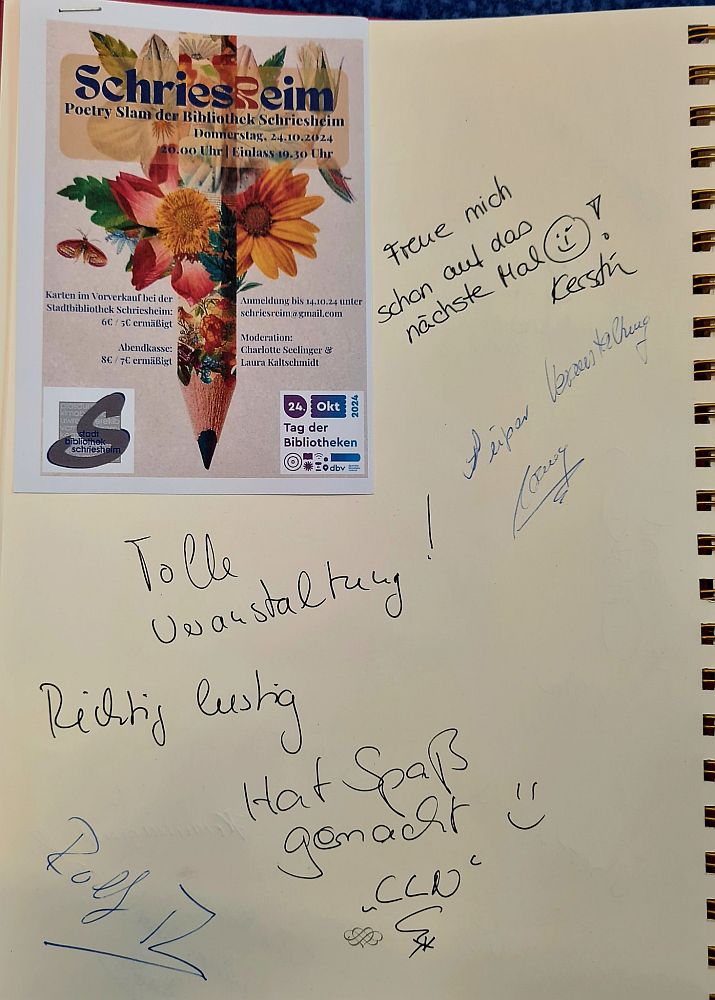 SchriesReim
Poetry Slam der Bibliothek Schriesheim
Donnerstag, 24.10.2024
20.00 Uhr | Einlass 19.30 Uhr
Karten im Vorverkauf bei der
Stadtbibliothek Schriesheim:
6€ / 5€ ermäßigt
Abendkasse:
8€ / 7€ ermäßigt
Anmeldung bis 14.10.24 unter
schriesreim@gmail.com
Moderation:
Charlotte Seelinger &
Laura Kaltschmidt
stadt
bibliothek
schriesheim
24. Okt 2024
Tag der
Bibliotheken
dbv
Freue mich
schon auf das
nächste Mal !
Kerstin
Super Veranstaltung
Tolle
Veranstaltung !
Richtig lustig
Hat Spaß
gemacht
Rolf